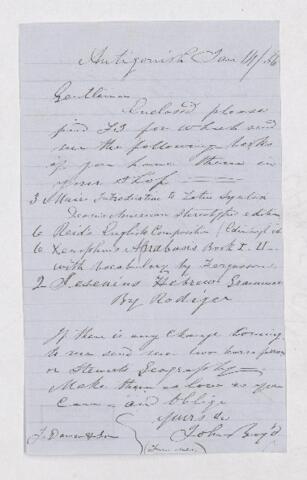 Antigonish Jan 14/56
Gentlemen
Enclosed please
find £3 for which send
me the following books
if you have them in
your Shop
3 Mair Introduction to Latin Syntax
American Stereotype edition
6 Reids English Composition (Edinburgh ed
6 Xenophons Anabasis Book I. II
with Vocabulary by Fergusson
2 Gesenius Hebrew Grammar
By Rodiger
If there is any change coming
to me send me two
or Stewarts Geography
Make them as low as you
can and oblige
yours &c
John Boyd